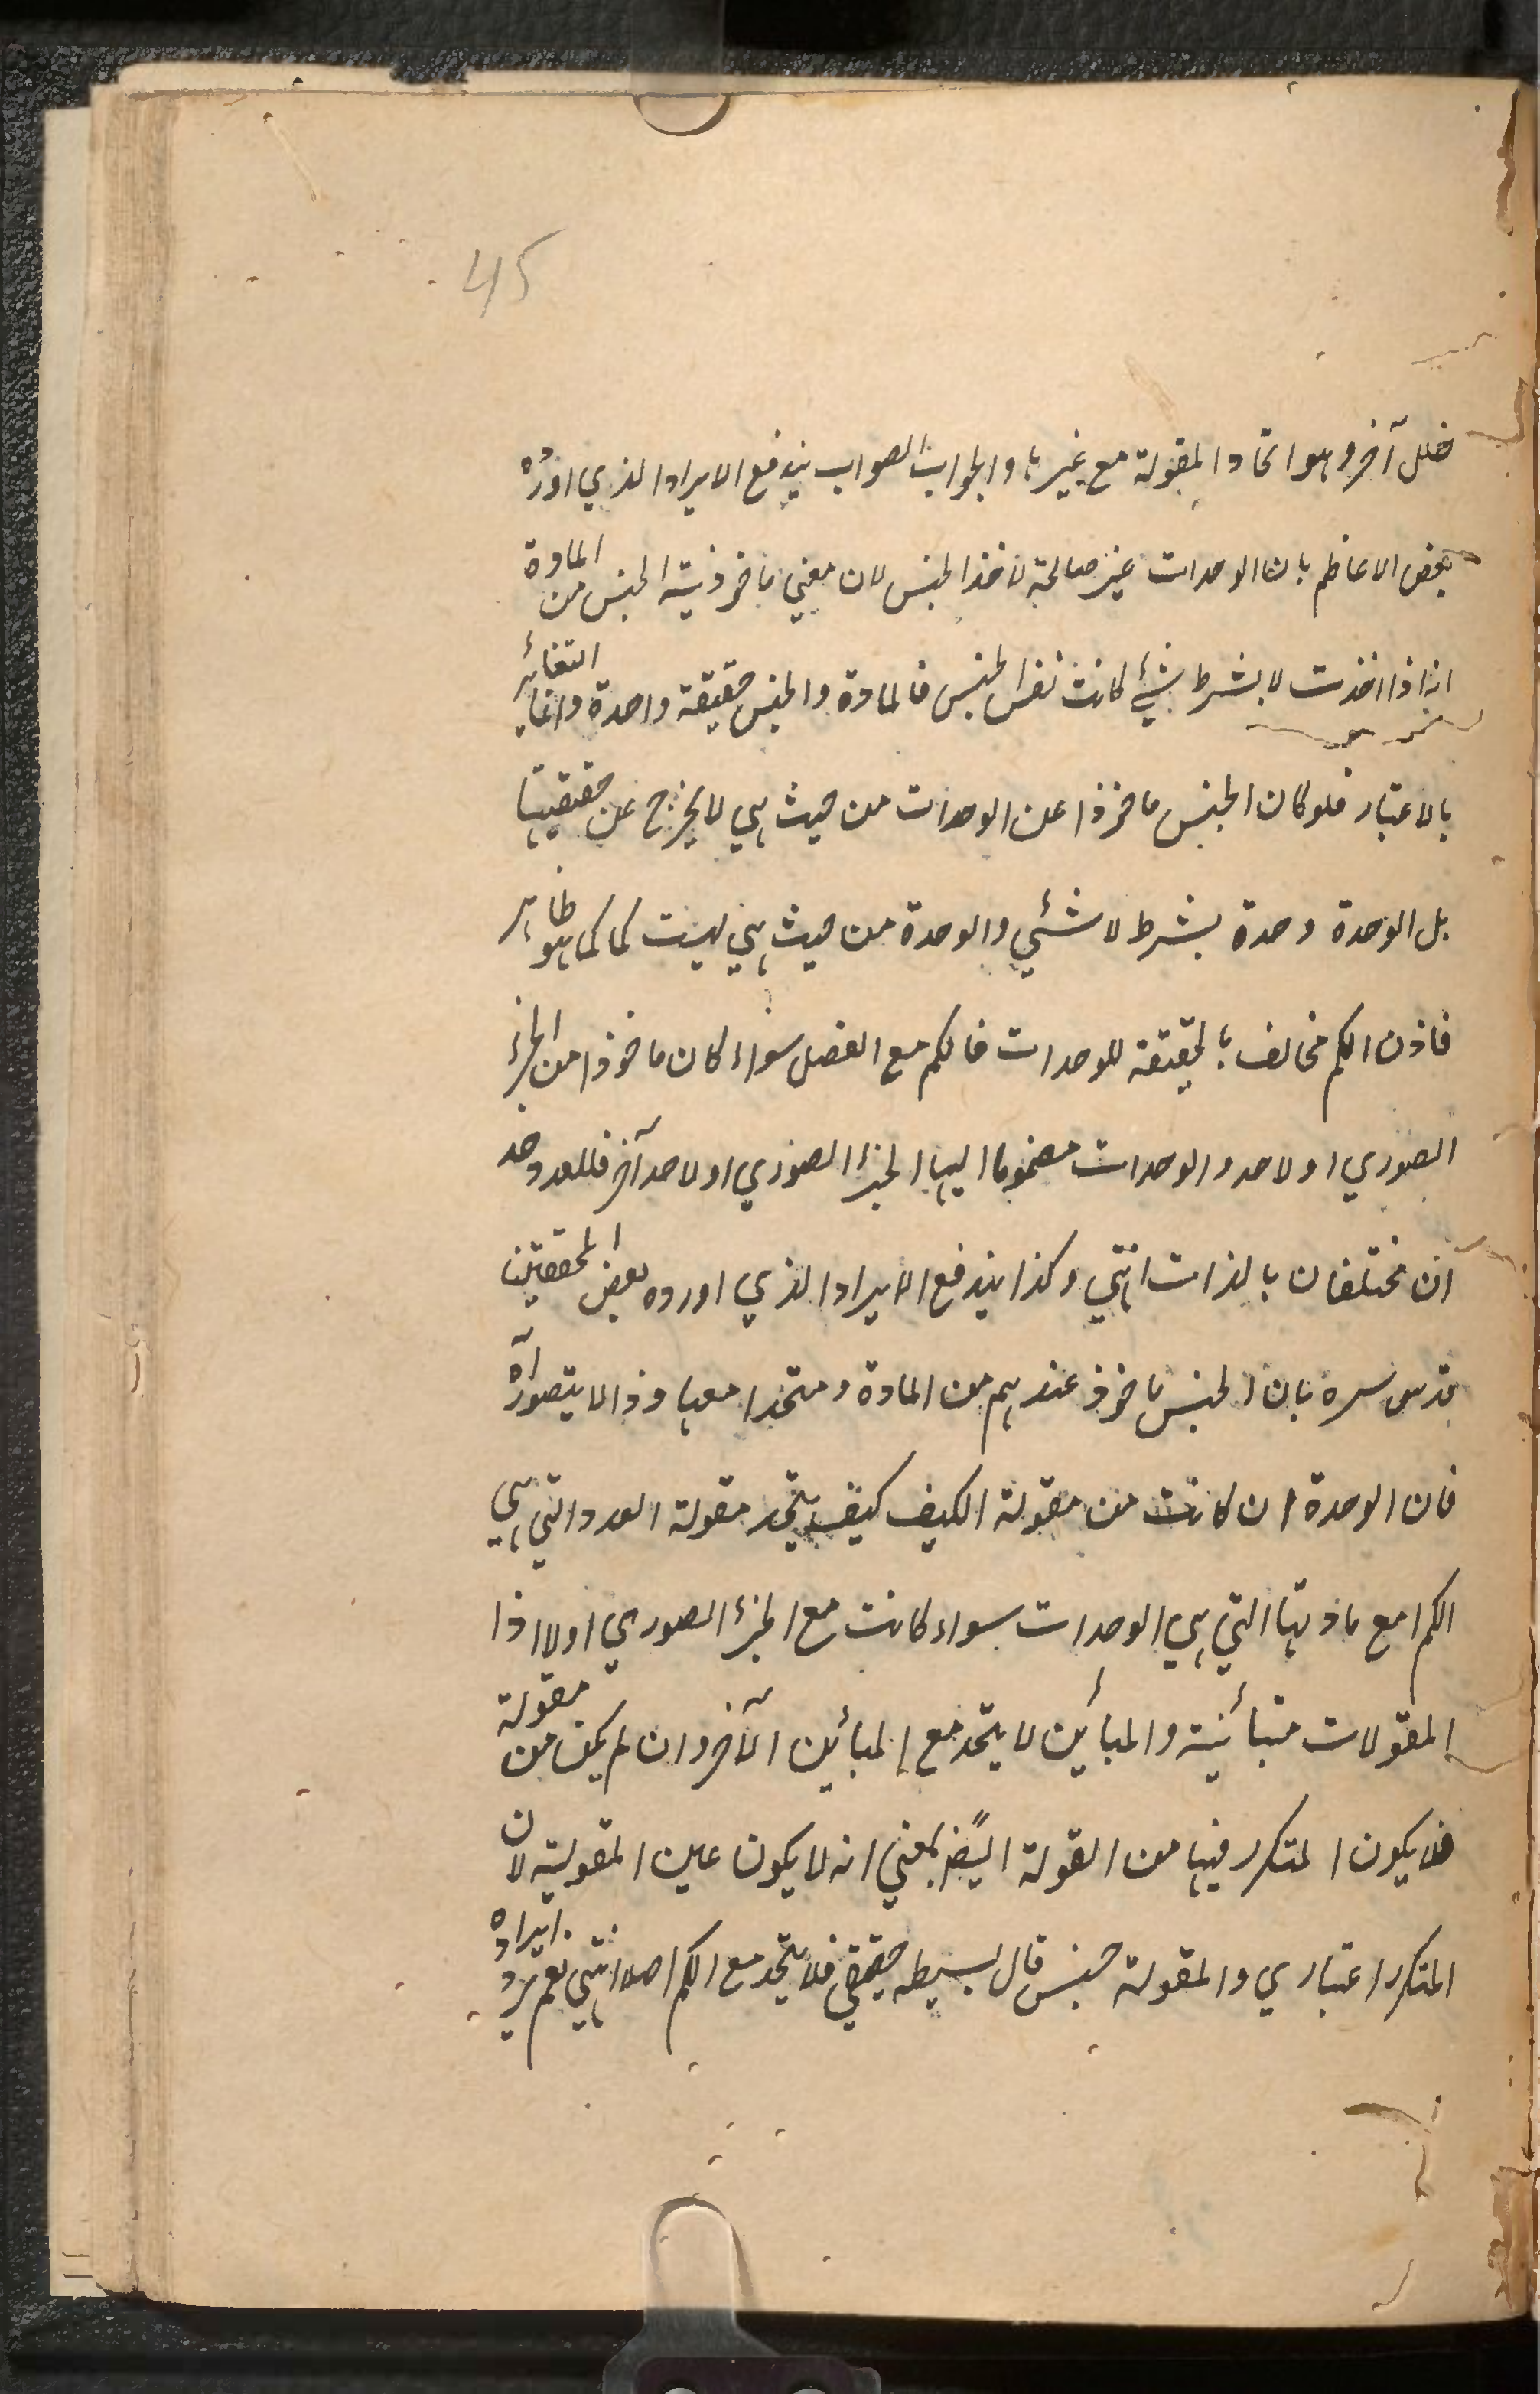 45
خلل آخر وهو اتحاد المقولة مع غيرها والجواب الصواب يندفع الايراد الذي اورده
بعض الاعاظم بان الوحدات غير صالحة لاخذ الجنس لان معني ماخوذية الجنس من المادة
انه اذا اخذت لا بشرط شئ كانت نفس الجنس فالمادة والجنس حقيقة واحدة وانما التغائر
بالاعتبار فلو كان الجنس ماخوذا عن الوحدات من حيث هي لا يخرج عن حقيقيتها
بل الوحدة وحدة بشرط لا شئي والوحدة من حيث هي ليست كما كما هو ظاهر
فاذن الكم مخالف بالحقيقة للوحدات فالكم مع الفصل سواء كان ماخوذا من الجزء
الصوري اولا حد والوحدات مضموما اليها الجزء الصوري اولا حد آخر فللعدد حد
آن مختلفان بالذات انتهي وكذا يندفع الايراد الذي اورده بعض المحققين
قدس سره بان الجنس ماخوذ عندهم من المادة ومتحدا معها وذا لا يتصور آه
فان الوحدة ان كانت من مقولة الكيف كيف يتحد مقولة العدد التي هي
الكم مع مادتها التي هي الوحدات سواء كانت مع الجزء الصوري اولا اذا
المقولات متبأئنية والمبأئن لا يتحد مع المبأئن الآخر وان لم يكن من مقولة
فلا يكون المتكرر فيها من القولة ايضًا بمعني انه لا يكون عين المقولية لان
المتكرر اعتباري والمقولة جنس قال بسيطه حقيقي فلا يتحد مع الكم اصلا انتهي نعم يرد ايراده